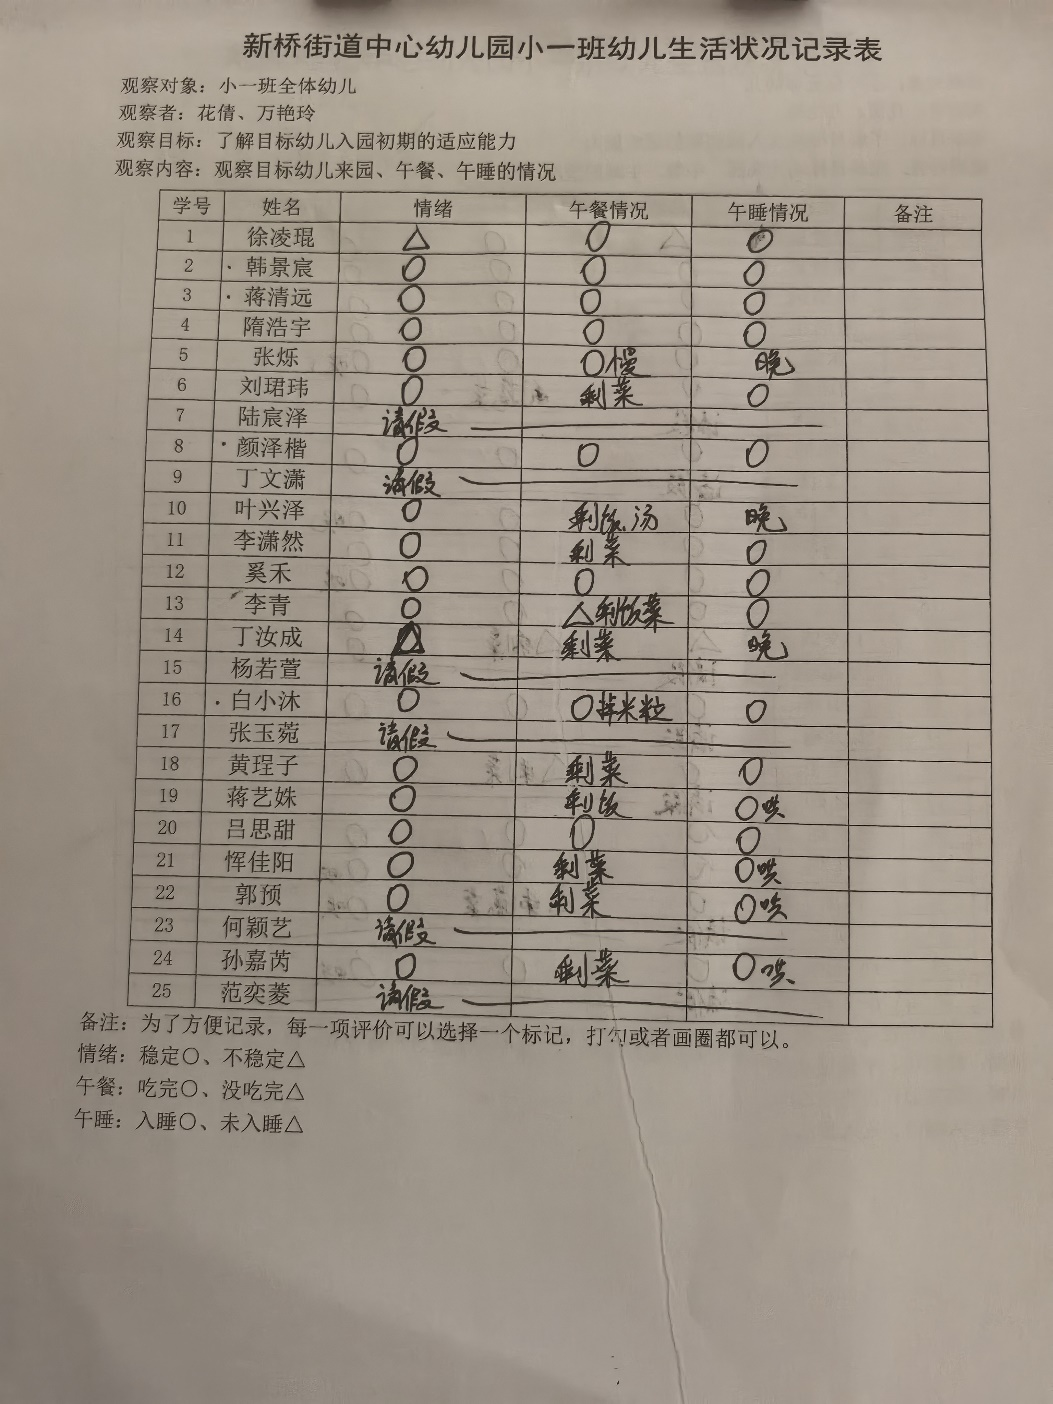 新桥街道中心幼儿园小一班幼儿生活状况记录表
观察对象：小一班全体幼儿
观察者：花倩、万艳玲
观察目标：了解目标幼儿入园初期的适应能力
观察内容：观察目标幼儿来园、午餐、午睡的情况
学号 姓名 情绪 午餐情况 午睡情况 备注
1 徐凌琨 △ ○ ○
2 · 韩景宸 ○ ○ ○
3 · 蒋清远 ○ ○ ○
4 隋浩宇 ○ ○ ○
5 张烁 ○ ○慢 晚
6 刘珺玮 ○ 剩菜 ○
7 陆宸泽 请假
8 · 颜泽楷 ○ ○ ○
9 丁文潇 请假
10 叶兴泽 ○ 剩饭、汤 晚
11 李潇然 ○ 剩菜 ○
12 奚禾 ○ ○ ○
13 李青 ○ △剩饭菜 ○
14 丁汝成 △ 剩菜 晚
15 杨若萱 请假
16 · 白小沐 ○ ○掉米粒 ○
17 张玉菀 请假
18 黄珵子 ○ 剩菜 ○
19 蒋艺姝 ○ 剩饭 ○哄
20 吕思甜 ○ ○ ○
21 恽佳阳 ○ 剩菜 ○哄
22 郭预 ○ 剩菜 ○哄
23 何颖艺 请假
24 孙嘉芮 ○ 剩菜 ○哄
25 范奕菱 请假
备注：为了方便记录，每一项评价可以选择一个标记，打勾或者画圈都可以。
情绪：稳定○、不稳定△
午餐：吃完○、没吃完△
午睡：入睡○、未入睡△